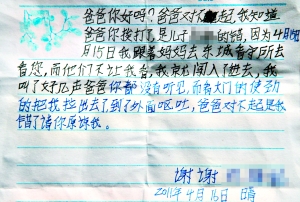 爸爸你好吗？爸爸对不起，我知道
爸爸你挨打了是儿子的错，因为4月
月15日我跟着妈妈去东城看守所去
看您，而他们不让我看，我就闯入了进去，我
叫了好几声爸爸你都没有听见，而看大门的使劲
的把我拉出去了到了外面呕吐，爸爸对不起是我
错了请你原谅我。
谢谢
2011年4月16日 晴